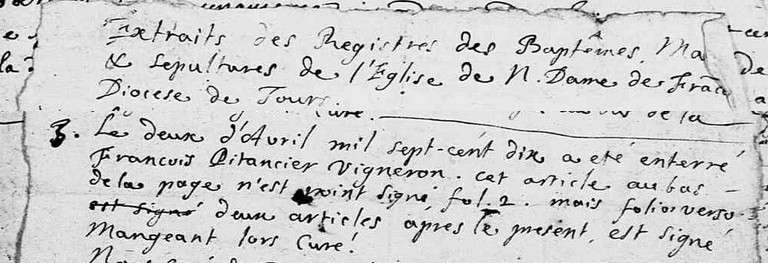 Extraits des Registres des Baptêmes, Ma
& sepultures de l'Eglise de N. Dame de Franc
Diocese de Tours.
Curé.
de la
3. Le deux d'Avril mil sept-cent dix a eté enterré
Francois Pitancier vigneron. cet article au bas
de la page n'est point signé fol. 2. mais folio verso
est signé deux articles apres le present, est signé
Mangeant lors Curé.